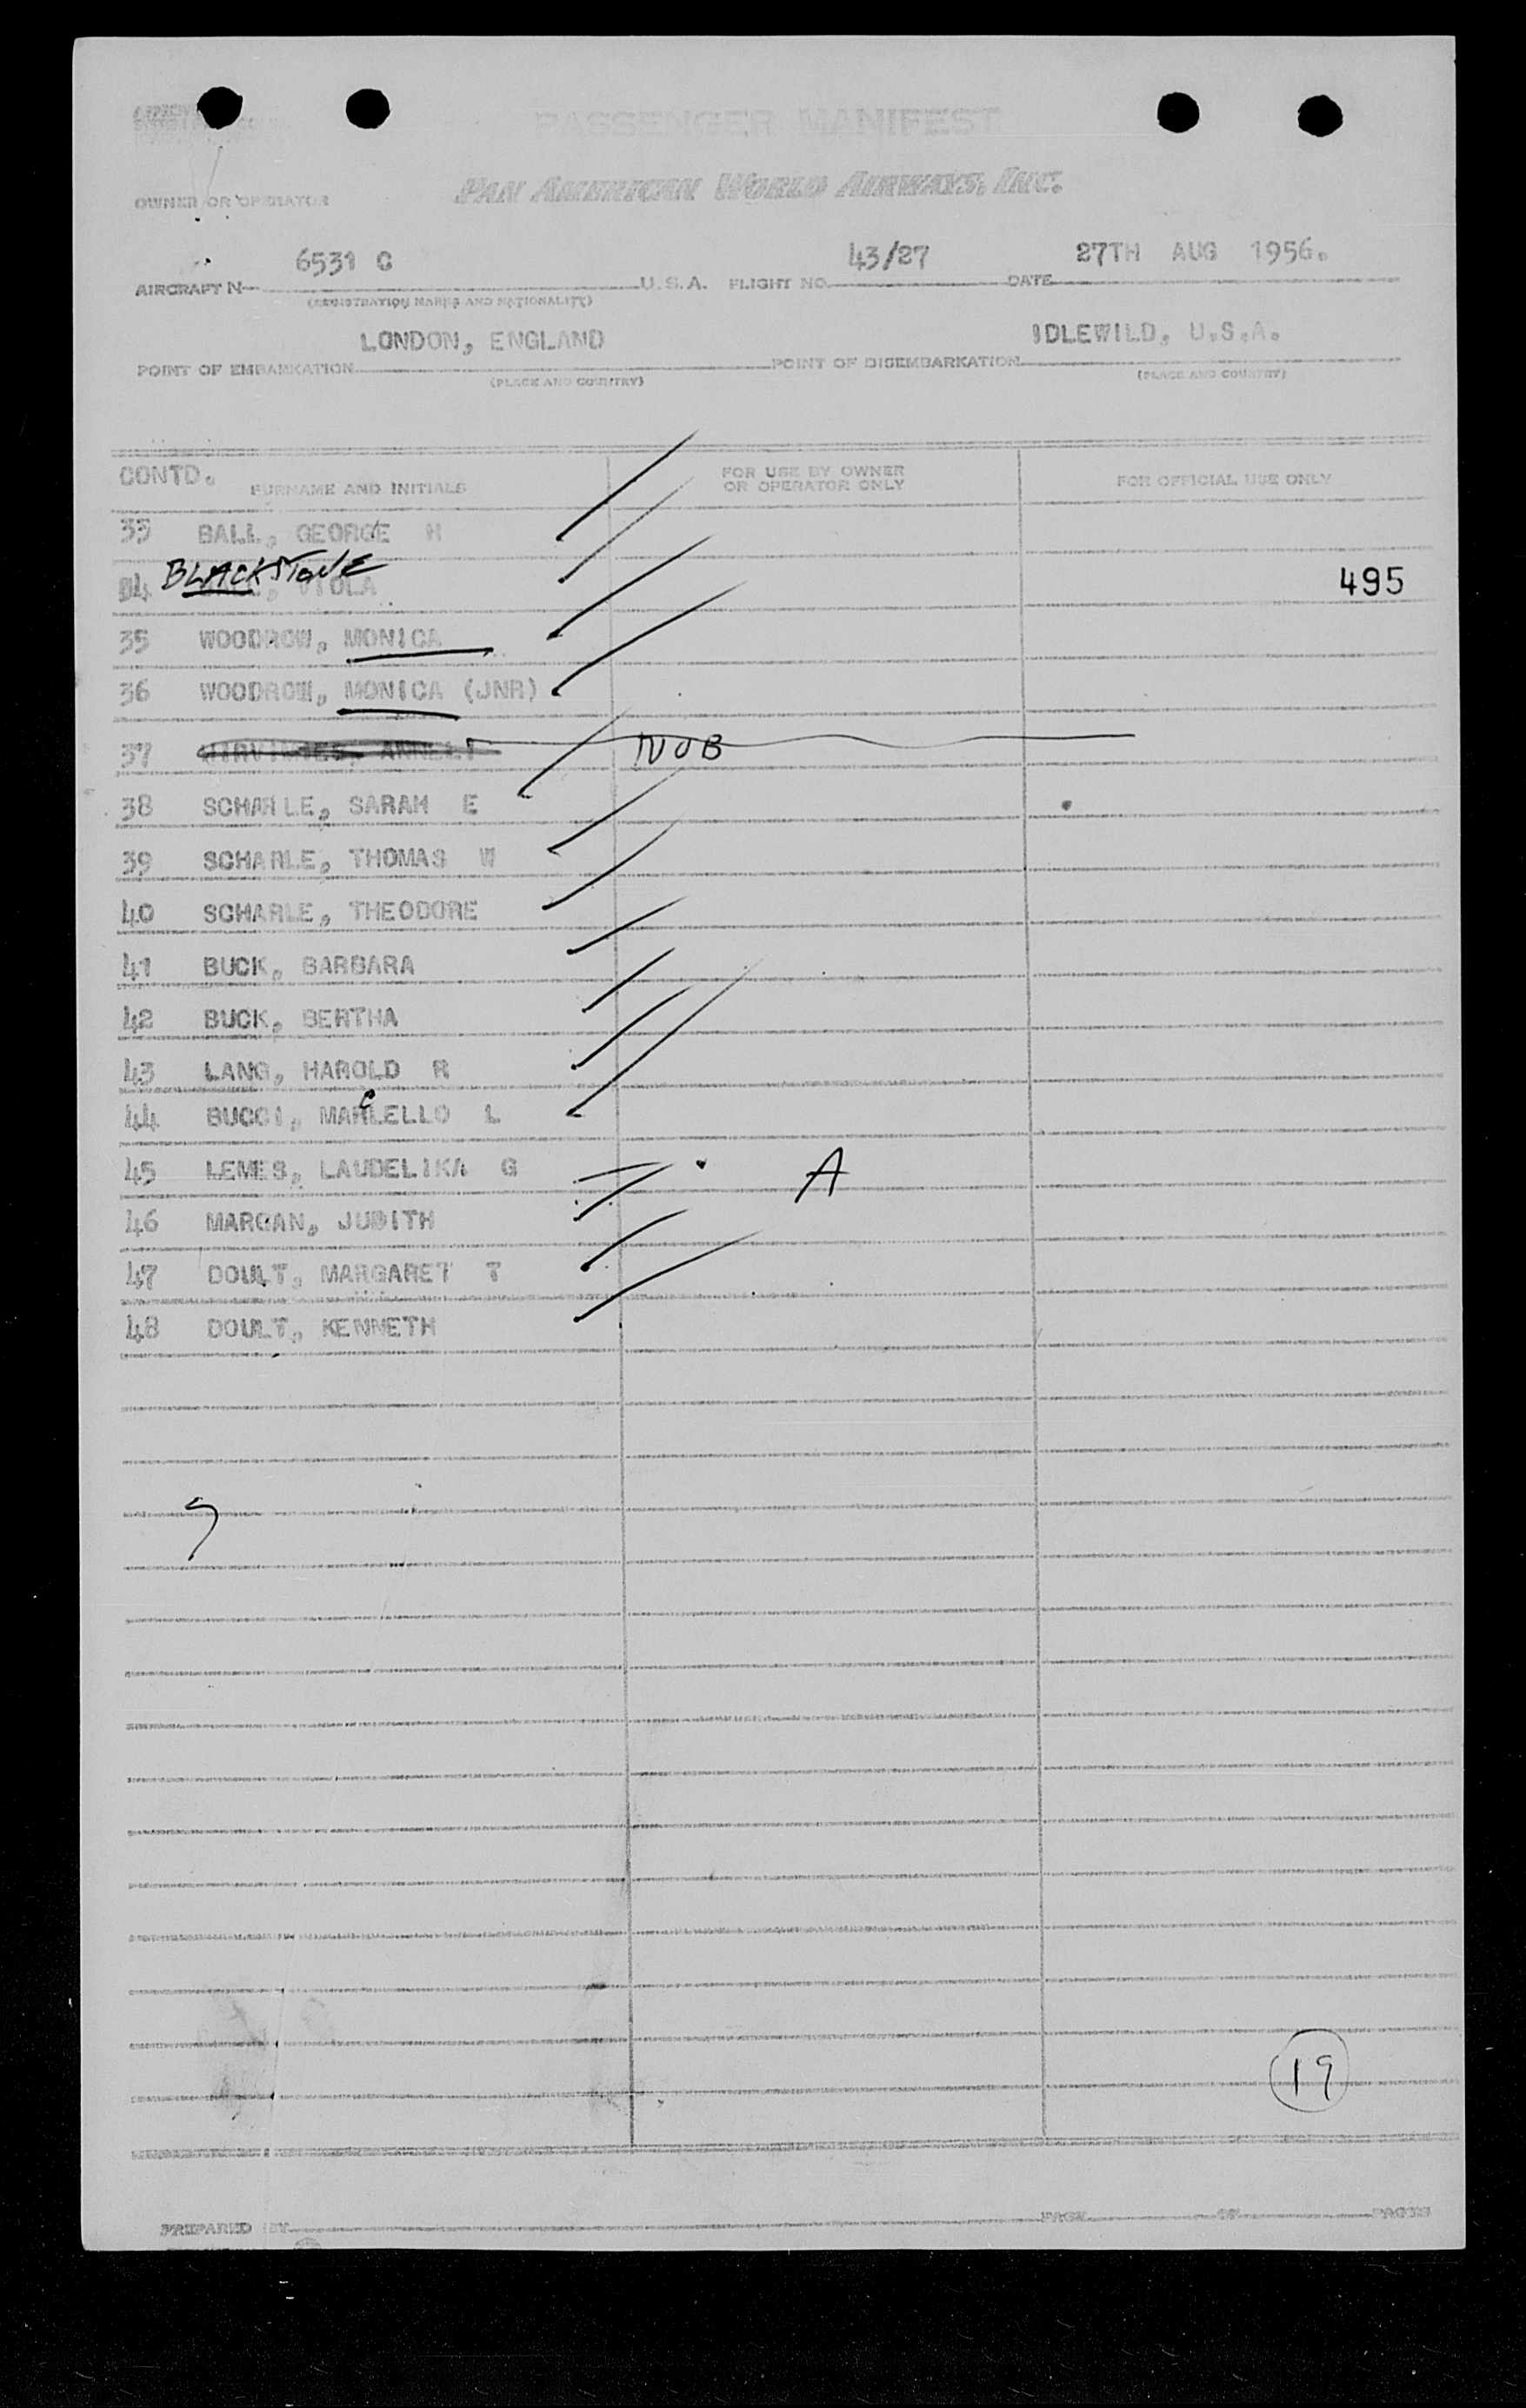 PASSENGER MANIFEST
PAN AMERICAN WORLD AIRWAYS, INC.
OWNER OR OPERATOR
AIRCRAFT N 6531 C U.S.A. FLIGHT NO. 43/27 DATE 27TH AUG 1956.
(REGISTRATION MARKS AND NATIONALITY)
POINT OF EMBARKATION LONDON, ENGLAND POINT OF DISEMBARKATION IDLEWILD, U.S.A.
(PLACE AND COUNTRY) (PLACE AND COUNTRY)
CONTD. SURNAME AND INITIALS FOR USE BY OWNER OR OPERATOR ONLY FOR OFFICIAL USE ONLY
33 BALL, GEORGE H
34 BLACKSTONE VIOLA 495
35 WOODROW, MONICA
36 WOODROW, MONICA (JNR)
37 NOB
38 SCHARLE, SARAH E
39 SCHARLE, THOMAS W
40 SCHARLE, THEODORE
41 BUCK, BARBARA
42 BUCK, BERTHA
43 LANG, HAROLD R
44 BUCCI, MARCELLO L
45 LEMES, LAUDELIKA G A
46 MARGAN, JUDITH
47 DOULT, MARGARET T
48 DOULT, KENNETH
19
PREPARED BY PAGE OF PAGES